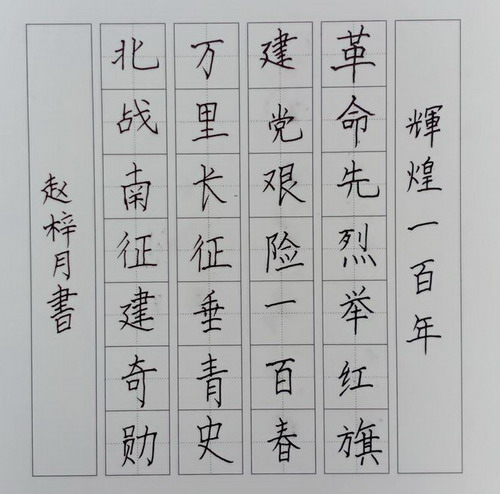 輝煌一百年
革命先烈举红旗
建党艰险一百春
万里长征垂青史
北战南征建奇勋
赵梓月書